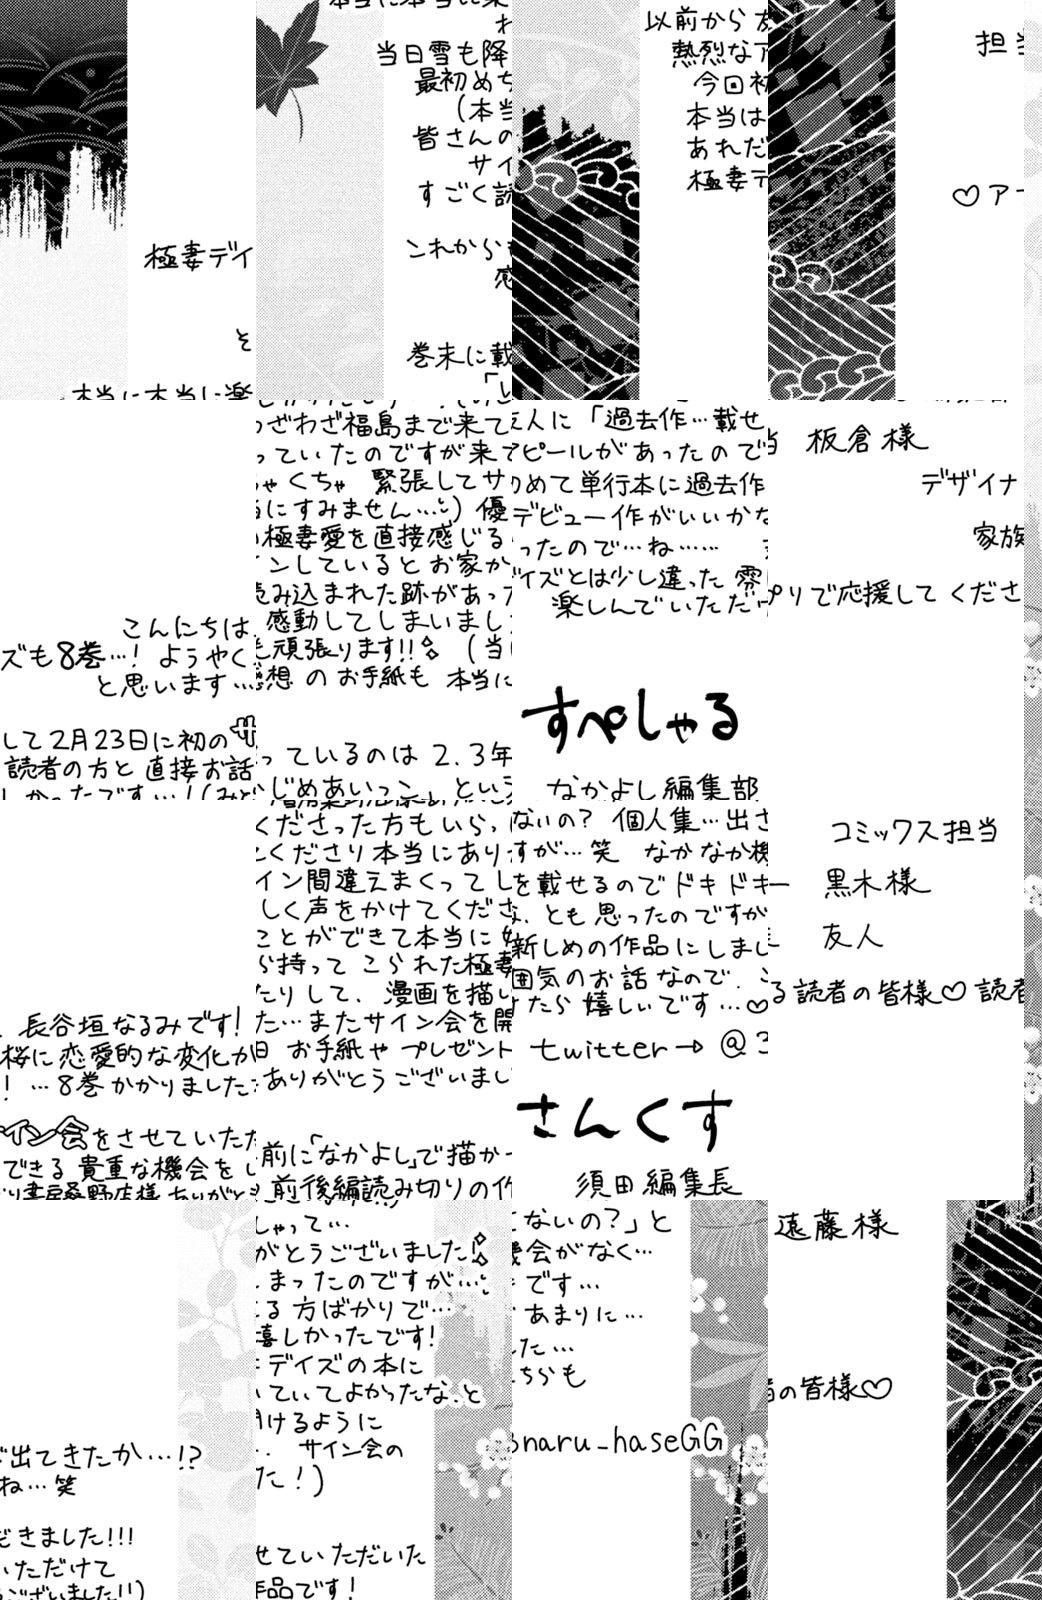 こんにちは、長谷垣なるみです!
極妻デイズも8巻…!ようやく桜に恋愛的な変化が出てきたか…!?
と思います…! …8巻かかりましたね…笑
そして2月23日に初のサイン会をさせていただきました!!!
読者の方と直接お話できる貴重な機会をいただけて
本当に本当に楽しかったです…!(みどり書房桑野店様ありがとうございました!!)
わざわざ福島まで来てくださった方もいらっしゃって…
当日雪も降っていたのですが来てくださり本当にありがとうございました!
最初めちゃくちゃ 緊張してサイン間違えまくってしまったのですが…
(本当にすみません…)優しく声をかけてくださる方ばかりで…
皆さんの極妻愛を直接感じることができて本当に嬉しかったです!
サインしているとお家から持ってこられた極妻デイズの本に
すごく読み込まれた跡があったりして、漫画を描いていてよかったな、と
感動してしまいました…またサイン会を開けるように
これからも頑張ります!! (当日 お手紙や プレゼント… サイン会の
感想 のお手紙も 本当にありがとうございました!)
巻末に載っているのは2、3年前に「なかよし」で描かせていただいた
という前後編読み切りの作品です!
以前から友人に「過去作…載せないの? 個人集…出さないの?」と
熱烈なアピールがあったのですが…笑 なかなか機会がなく…
今回初めて単行本に過去作を載せるのでドキドキです…
本当はデビュー作がいいかな、とも思ったのですがあまりに…
あれだったので…ね…… 新しめの作品にしました…
極妻デイズとは少し違った雰囲気のお話なので、こちらも
楽しんでいただけたら嬉しいです…♡
twitter→ @3naru_haseGG
すぺしゃるさんくす
なかよし編集部 須田編集長
担当 板倉様 コミックス担当 遠藤様
デザイナー 黒木様
家族 友人
♡アプリで応援してくださる読者の皆様♡読者の皆様♡